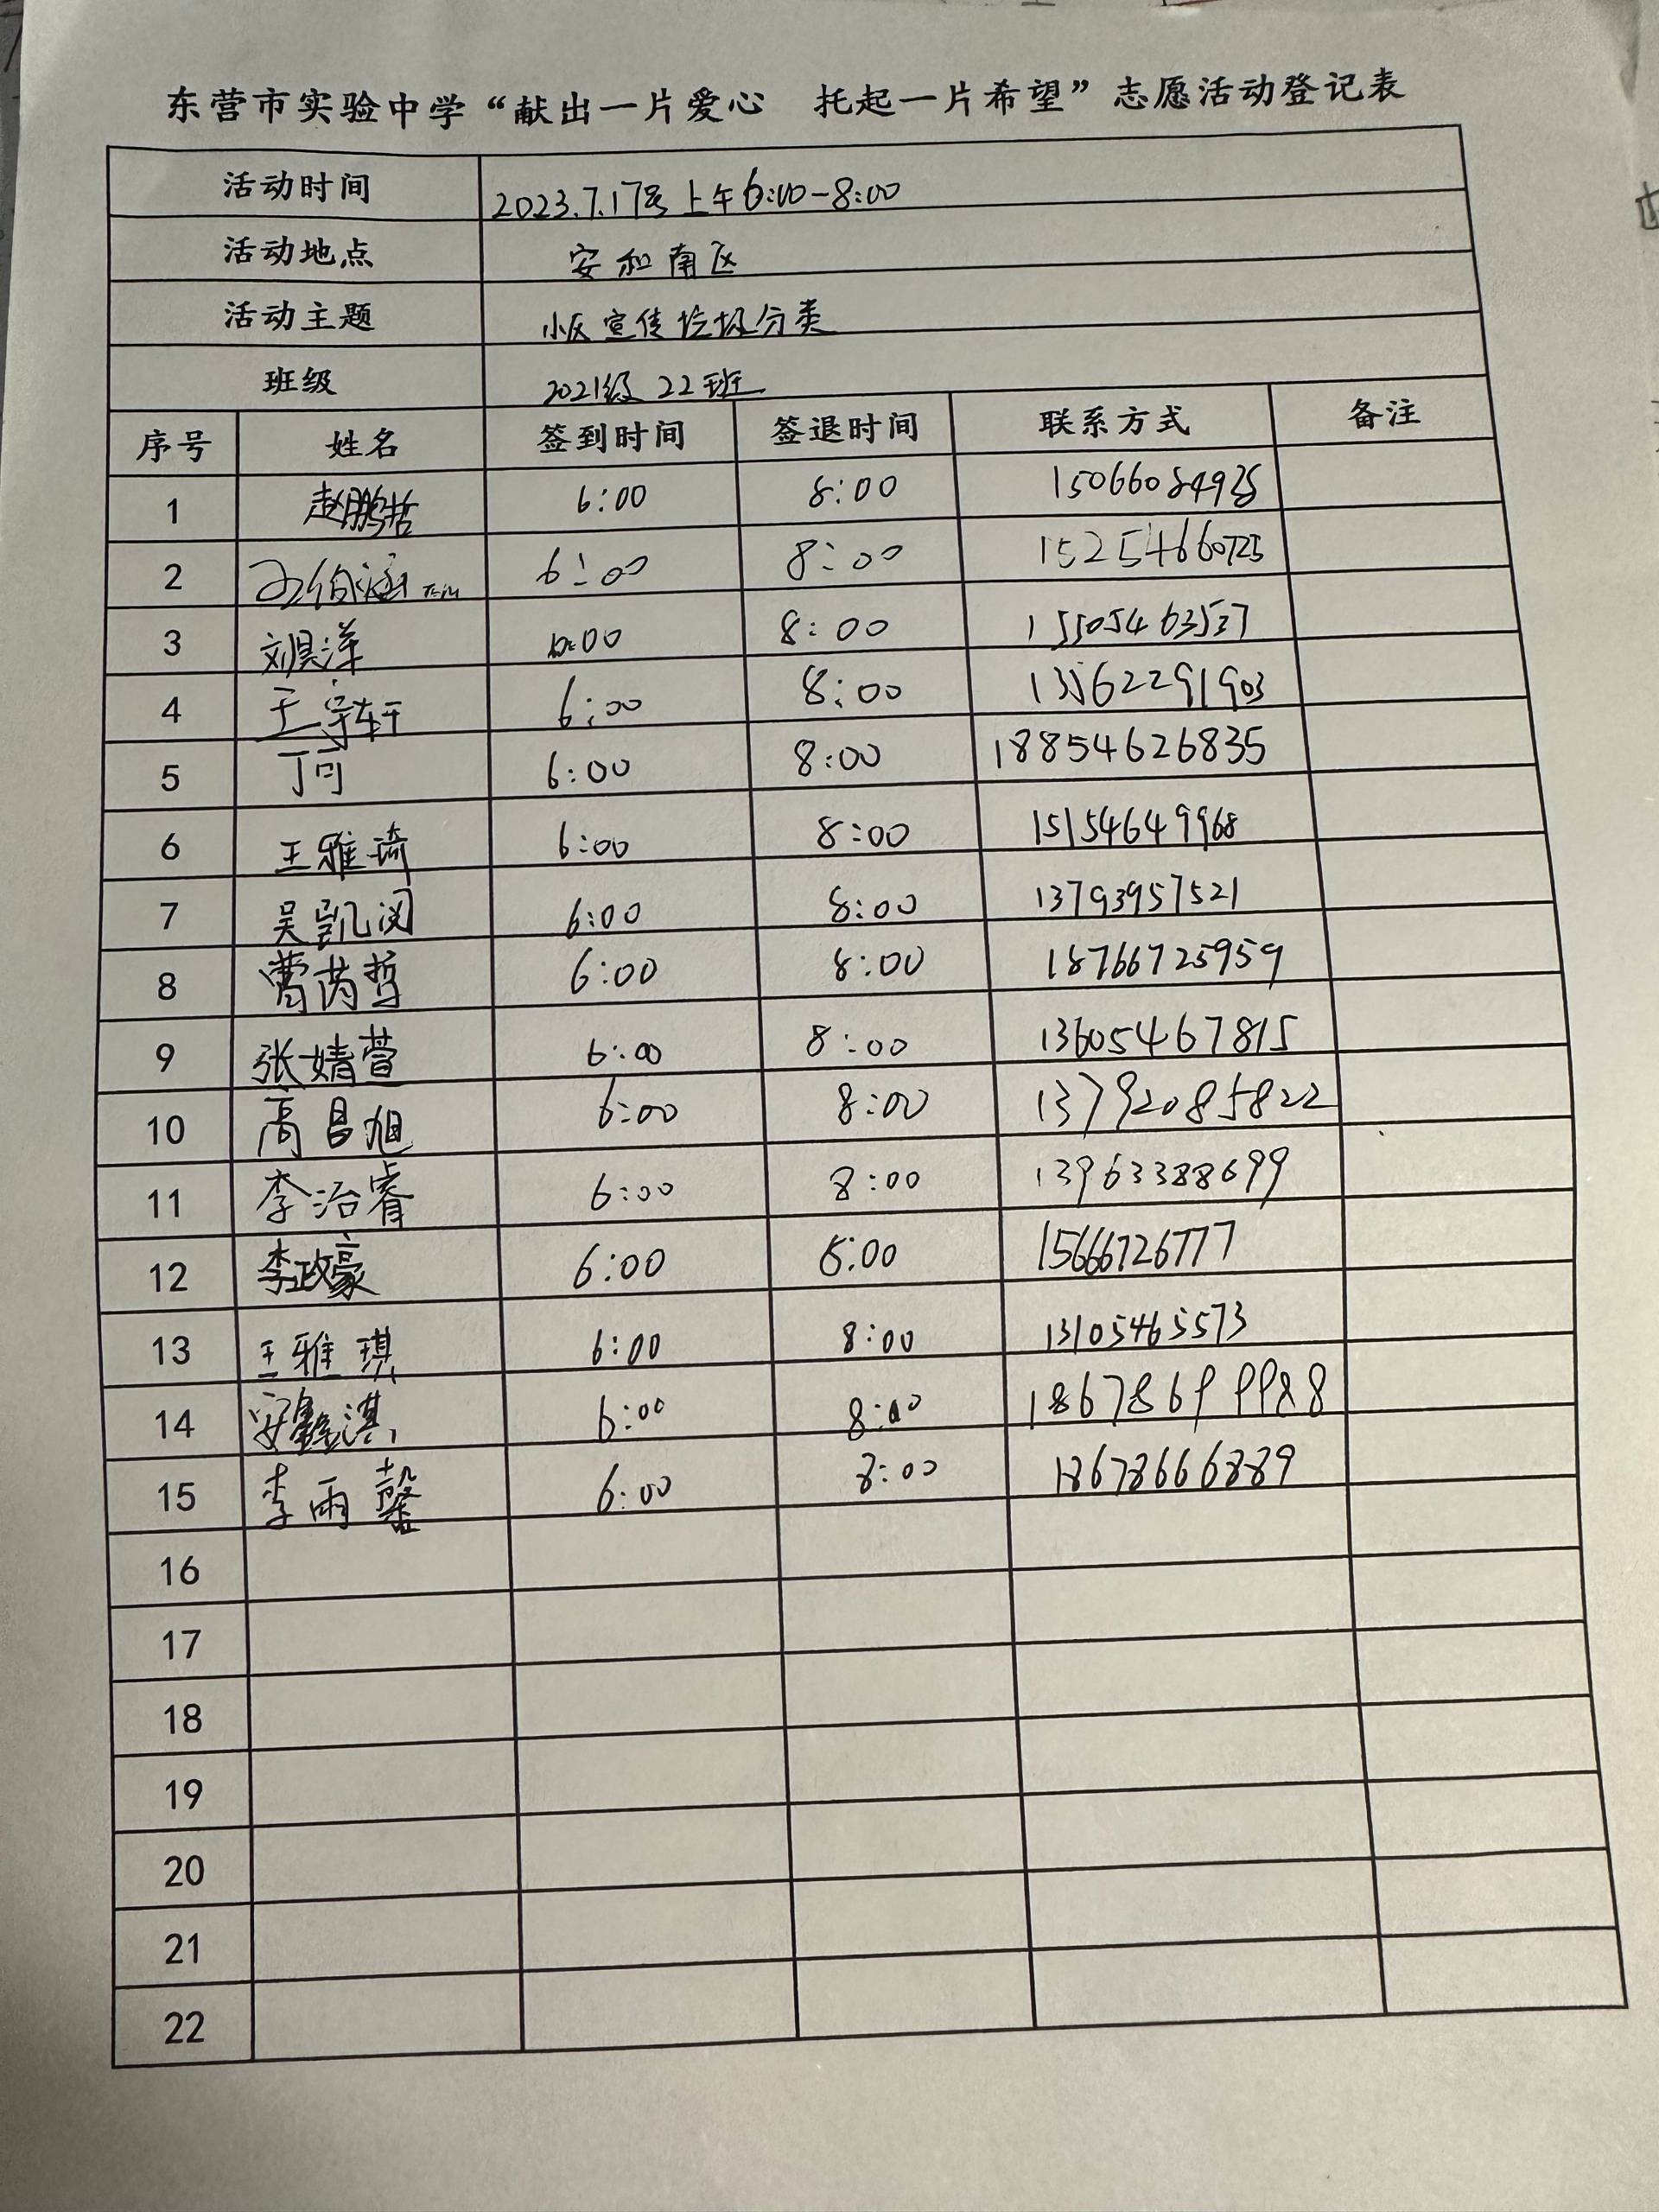 东营市实验中学“献出一片爱心 托起一片希望”志愿活动登记表
活动时间 2023.7.17号上午6:00-8:00
活动地点 安和南区
活动主题 小区宣传垃圾分类
班级 2021级22班
序号 姓名 签到时间 签退时间 联系方式 备注
1 赵鹏哲 6:00 8:00
2 6:00 8:00 15254660725
3 刘昊洋 6:00 8:00 15505463537
4 王宇轩 6:00 8:00 13562291903
5 丁可 6:00 8:00 18854626835
6 王雅琦 6:00 8:00 15154649968
7 吴凯闵 6:00 8:00 13793957521
8 曹芮哲 6:00 8:00 18766725959
9 张婧萱 6:00 8:00 13605467815
10 高昌旭 6:00 8:00 13792085822
11 李治睿 6:00 8:00 13963388699
12 李政豪 6:00 8:00 15666726777
13 王雅琪 6:00 8:00 13105465573
14 安鑫淇 6:00 8:00 18678699988
15 李雨馨 6:00 8:00 18678666889
16
17
18
19
20
21
22